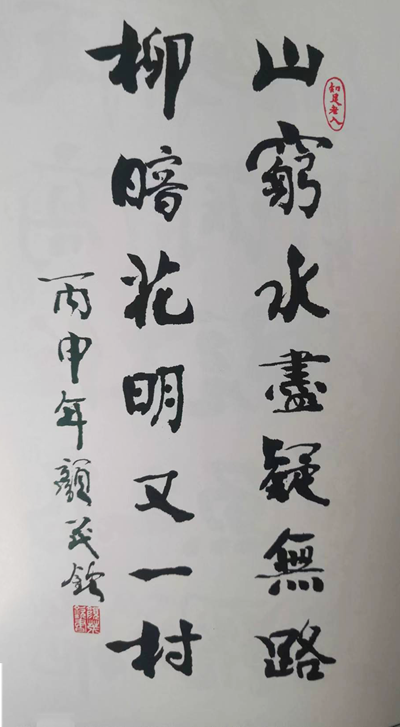 山窮水盡疑無路
柳暗花明又一村
丙申年顏茂欽
知足老人